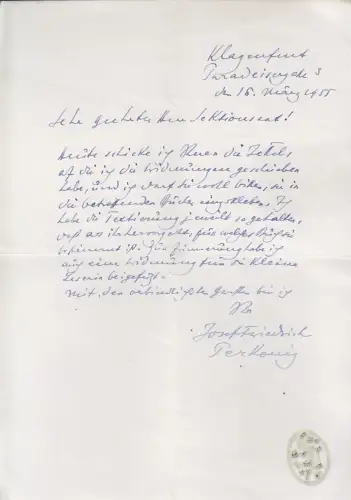 Klagenfurt
Paradeisergasse 3
den 16. März 1955
Sehr geehrter Herr Sektionsrat!
Heute schicke ich Ihnen die Zettel,
auf die ich die Widmungen geschrieben
habe, und ich darf Sie wohl bitten, sie in
die betreffenden Bücher einzukleben. Ich
habe die Textierung jeweils so gehalten,
daß es ihr hervorgeht, für welches Buch sie
bestimmt ist. Zur Erinnerung habe ich
auch eine Widmung für die kleine
Leserin beigefügt.
Mit den verbindlichsten Grüßen bin ich
Ihr
Josef Friedrich
Perkonig